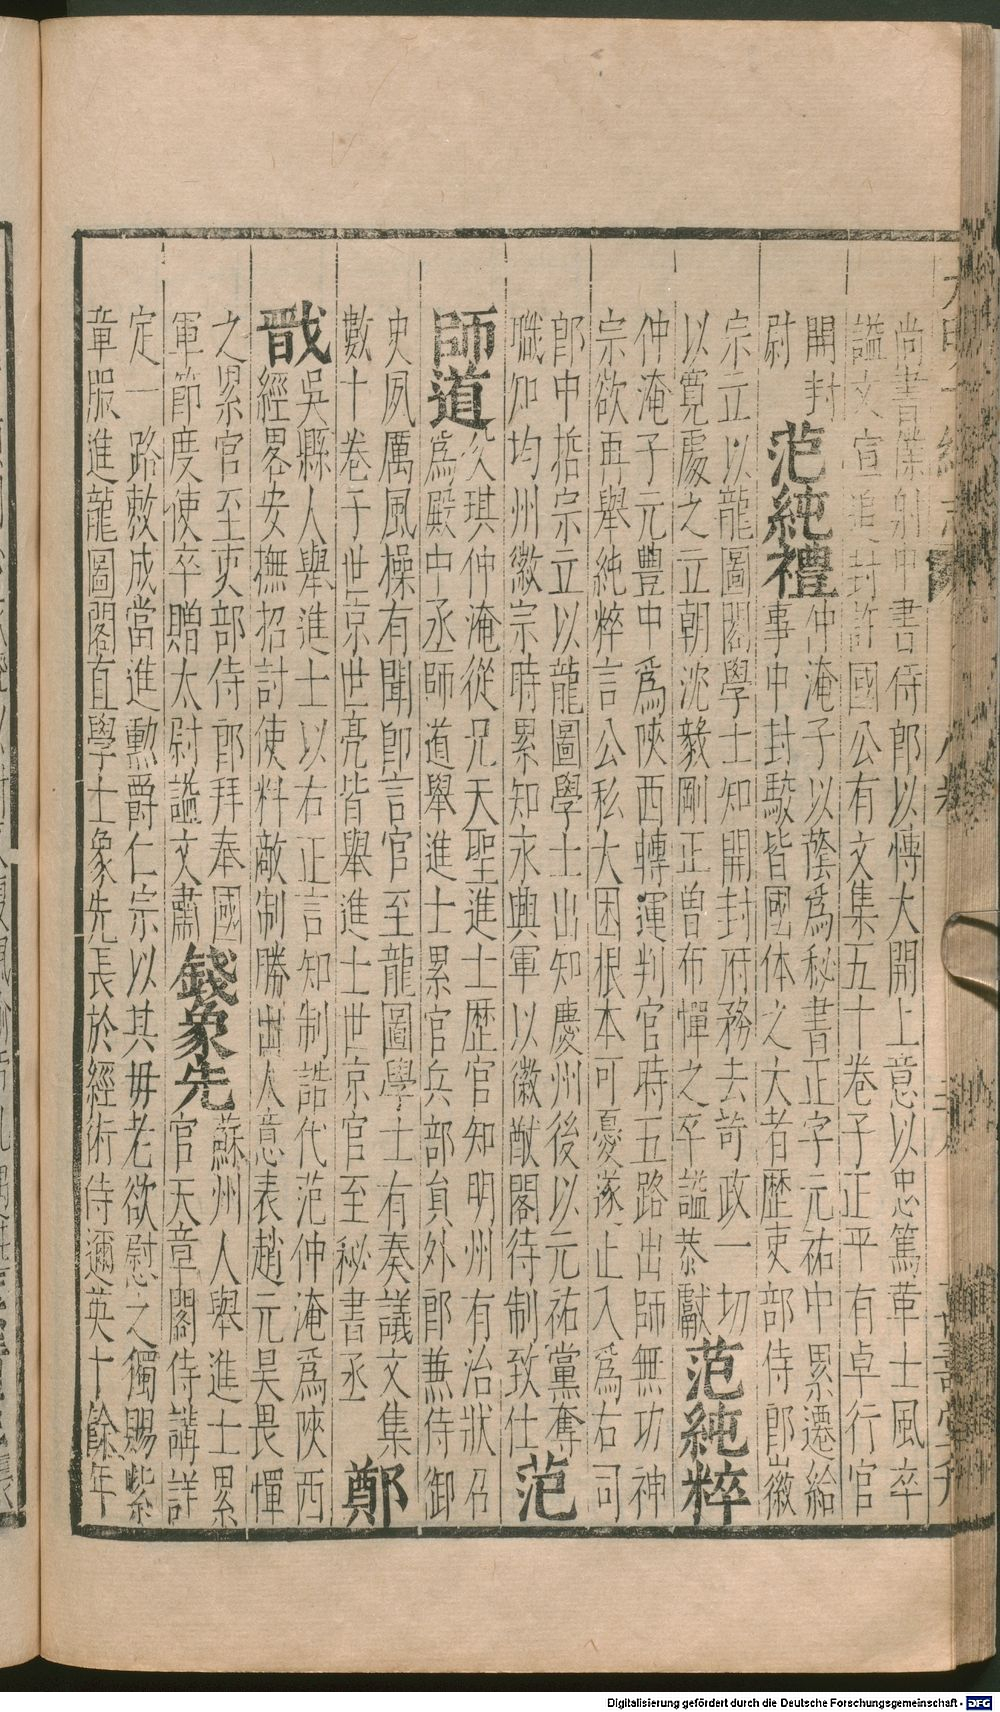 尚書僕射中書侍郎以慱大開上意以忠篤革士風卒
謚文宣追封許國公有文集五十卷子正平有卓行官
開封
尉
范純禮
仲淹子以蔭爲秘書正字元祐中累遷給
事中封駁皆國体之大者歴吏部侍郎徽
宗立以龍圖閣學士知開封府務去苛政一切
以寬處之立朝沈毅剛正曽布憚之卒謚恭獻
范純粹
仲淹子元豐中爲陜西轉運判官時五路出師無功神
宗欲再舉純粹言公私大困根本可憂遂止入爲右司
郎中哲宗立以龍圖學士出知慶州後以元祐黨奪
職知均州徽宗時累知永興軍以徽猷閣待制致仕
范
師道
父琪仲淹從兄天聖進士歴官知明州有治狀召
爲殿中丞師道舉進士累官兵部貟外郎兼侍御
史夙厲風操有聞卽言官至龍圖學士有奏議文集
數十卷于世京世亮皆舉進士世京官至秘書丞
鄭
戩
吳縣人舉進士以右正言知制誥代范仲淹爲陜西
經畧安撫招討使料敵制勝出人意表趙元昊畏憚
之累官至吏部侍郎拜奉國
軍節度使卒贈太尉謚文肅
錢象先
蘇州人舉進士累
官天章閣侍講詳
定一路敕成當進勳爵仁宗以其毋老欲慰之獨賜紫
章服進龍圖閣直學士象先長於經術侍邇英十餘年
Digitalisierung gefördert durch die Deutsche Forschungsgemeinschaft - DFG